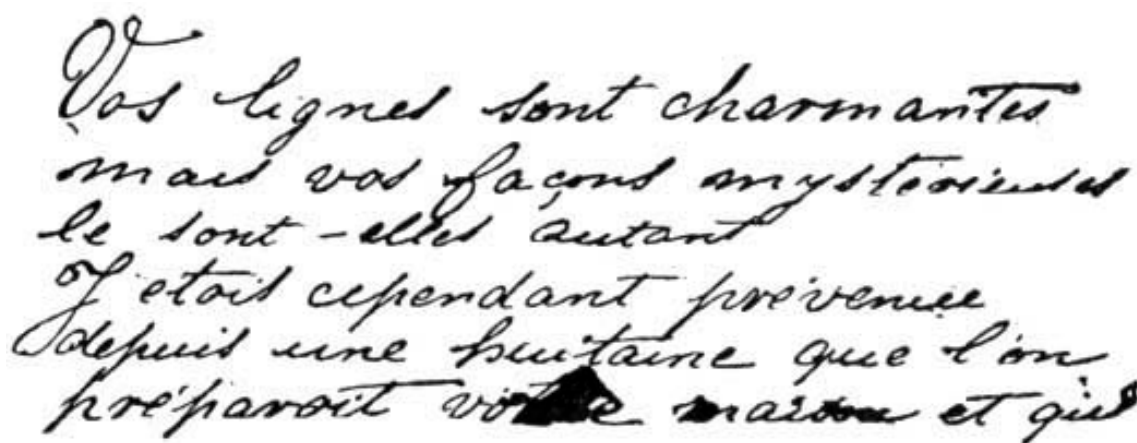 Vos lignes sont charmantes
mais vos façons mystérieuses
le sont-elles autant
J'etois cependant prévenue
depuis une huitaine que l'on
préparoit votre maison et que